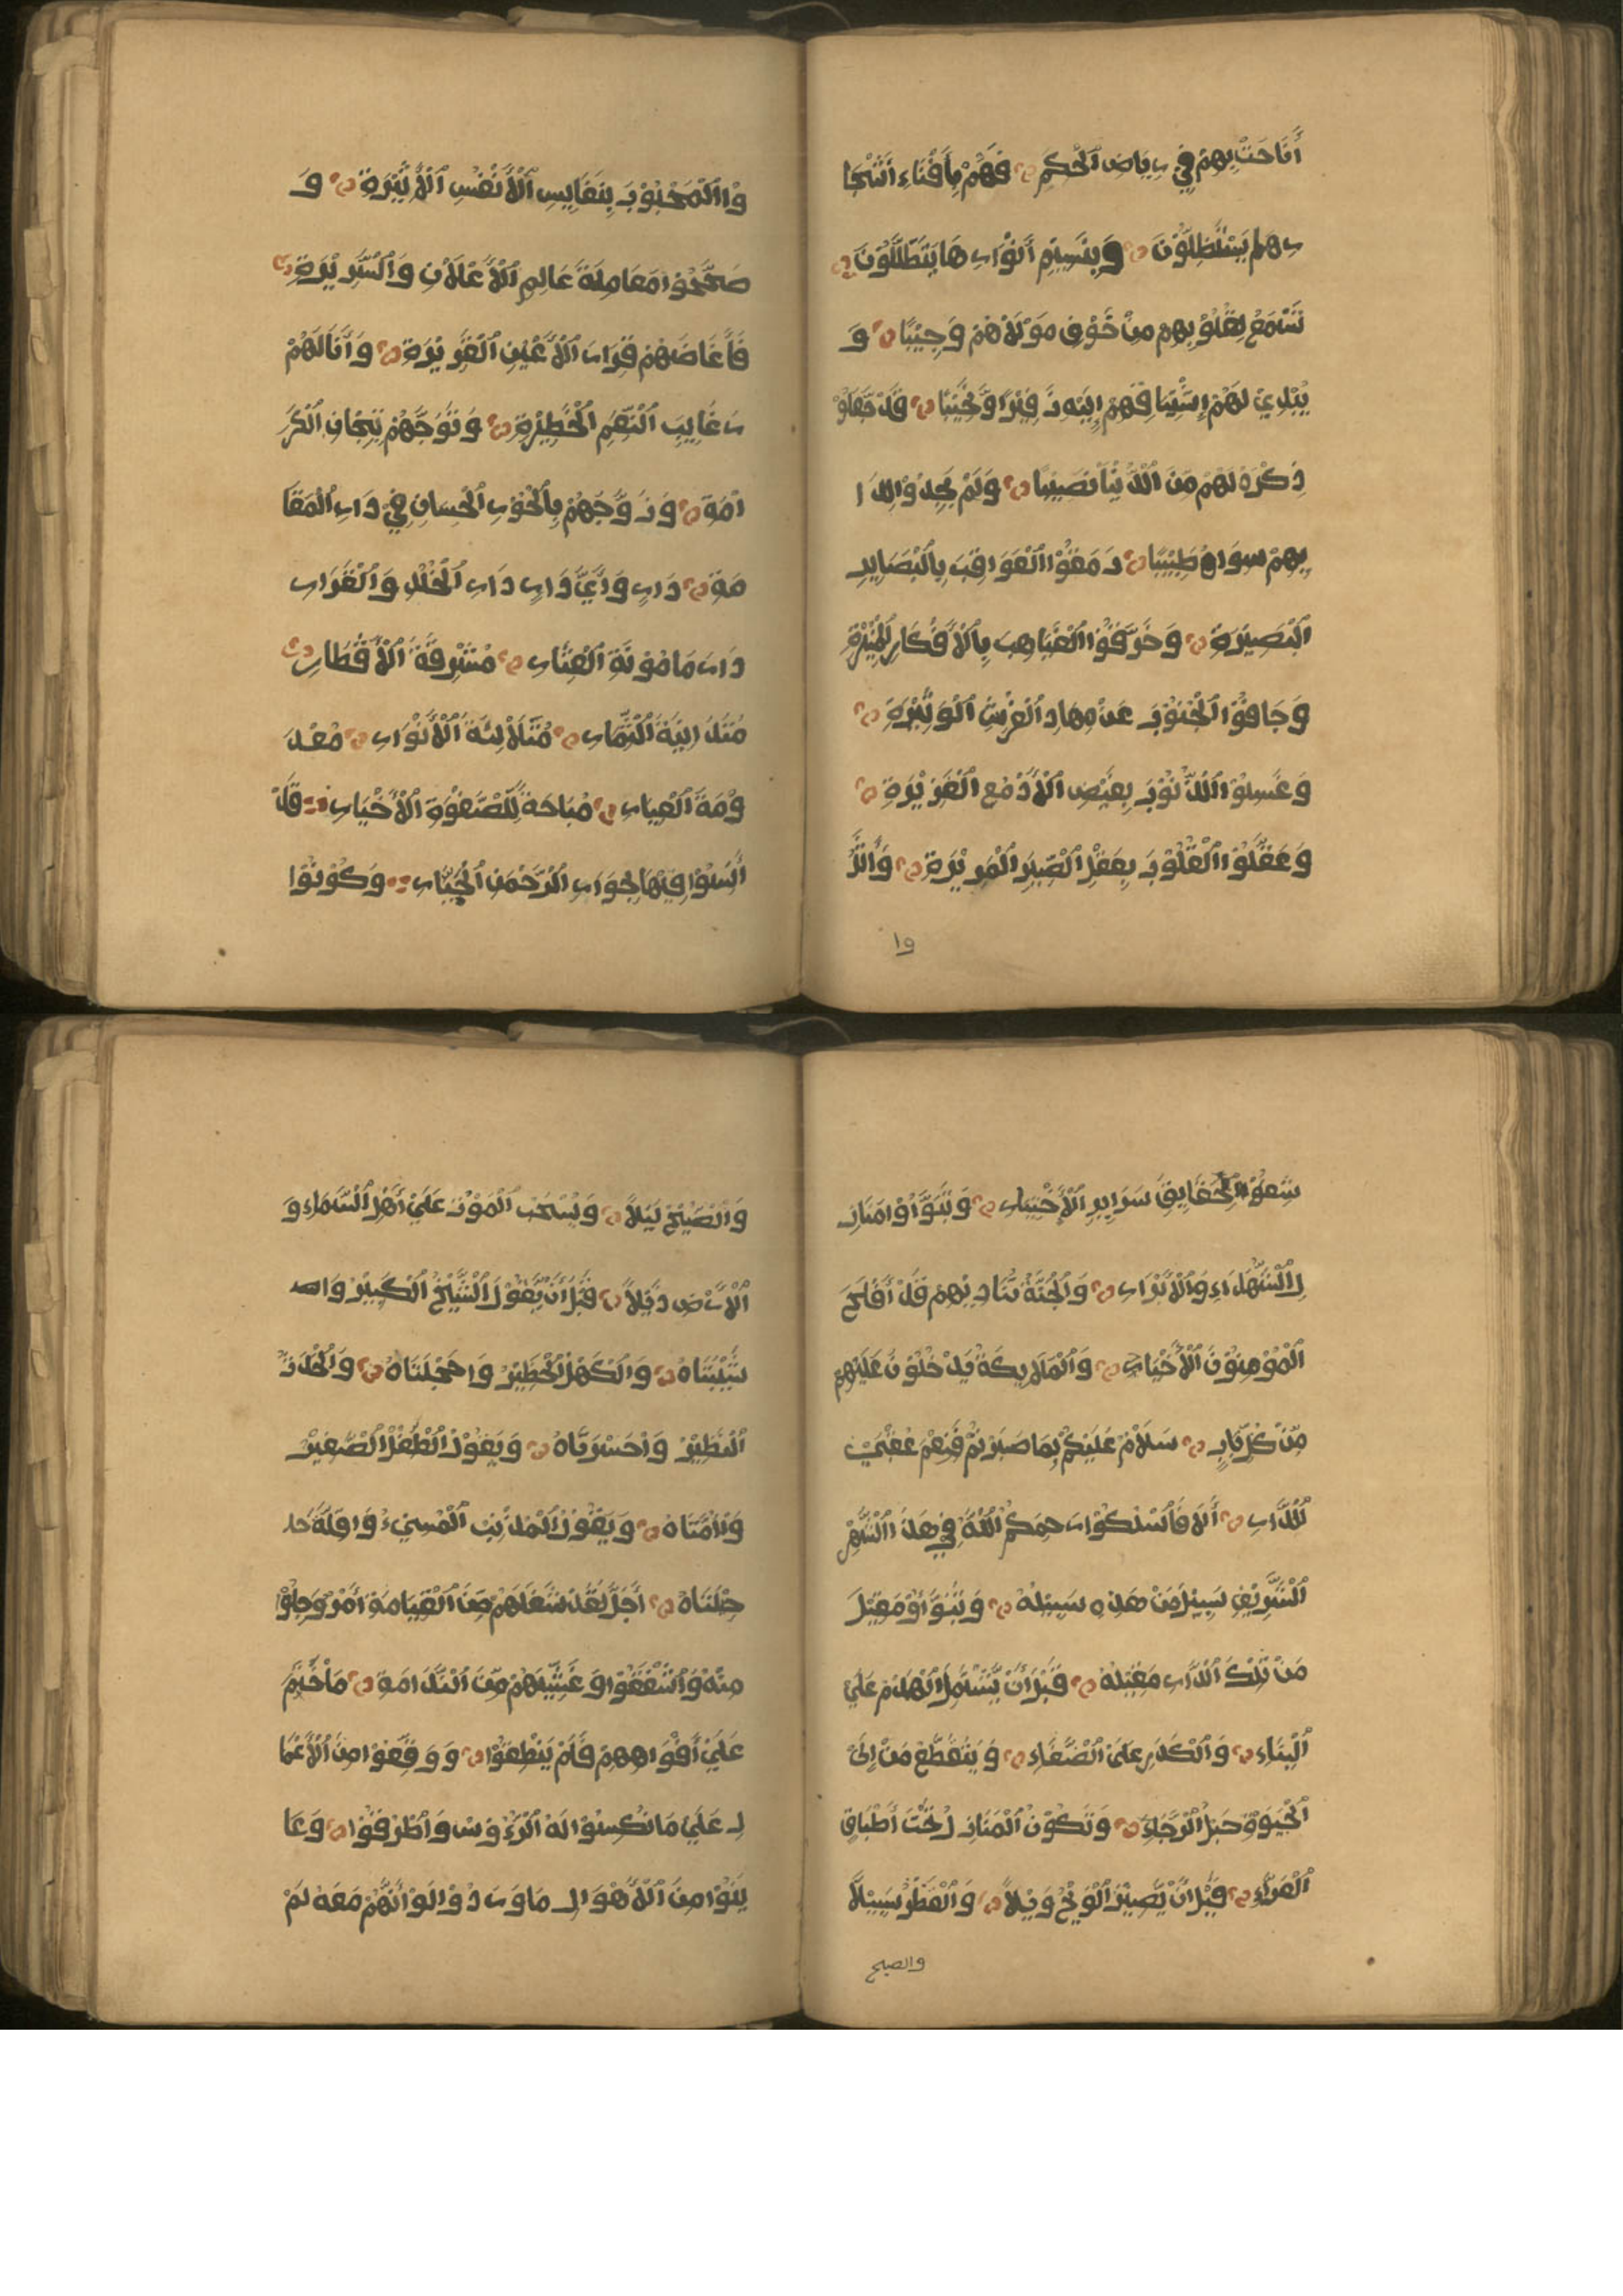 أَنَاخَتْ بِهِمْ فِي رِيَاضِ ٱلْحِكَمِ ۝ فَهُمْ بِأَفْنَاءِ أَشْجَا
رِهَا يَسْتَظِلُّوْنَ ۝ وَبِنَسِيْمِ أَنْوَارِهَا يَتَطَلَّلُوْنَ ۝
تَسْمَعُ لِقُلُوْبِهِمْ مِنْ خَوْفِ مَوْلَاهُمْ وَجِيْبًا ۝ وَ
يُبْدِيْ لَهُمْ إِشْتِيَاقُهُمْ إِلَيْهِ زَفِيْرًا وَنَحِيْبًا ۝ قَدْ جَعَلُوْ
ذِكْرَهُ لَهُمْ مِنَ ٱلدُّنْيَا نَصِيْبًا ۝ وَلَمْ يَجِدُوْا لِدَا
ئِهِمْ سِوَاهُ طَبِيْبًا ۝ رَمَقُوْا ٱلْعَوَاقِبَ بِٱلْبَصَايِرِ
ٱلْبَصِيْرَةِ ۝ وَخَرَّقُوْا ٱلْغَيَاهِبَ بِٱلْأَفْكَارِ ٱلْمُنِيْرَةِ
وَجَافَوْا ٱلْجُنُوْبَ عَنْ مِهَادِ ٱلْفُرُشِ ٱلْوَثِيْرَةِ ۝
وَغَسَلُوْا ٱلذُّنُوْبَ بِفَيْضِ ٱلْأَدْمُعِ ٱلْغَزِيْرَةِ ۝
وَعَقَّلُوْا ٱلْقُلُوْبَ بِعَقْلِ ٱلصَّبْرِ ٱلْمَرِيْرَةِ ۝ وَاٰثَرُ
وْا ٱلْمَحْبُوْبَ بِنَفَايِسِ ٱلْأَنْفُسِ ٱلْأَثِيْرَةِ ۝ وَ
صَحَّحُوْا مُعَامِلَةَ عَالِمِ ٱلْأَعْلَانِ وَٱلسَّرِيْرَةِ ۝
فَأَعَاضَهُمْ قَرَارَ ٱلْأَعْيُنِ ٱلْقَرِيْرَةِ ۝ وَأَنَالَهُمْ
رَغَايِبَ ٱلنِّعَمِ ٱلْخَطِيْرَةِ ۝ وَتَوَّجَهُمْ بِتِيْجَانِ ٱلْكَرَ
امَةِ ۝ وَزَوَّجَهُمْ بِٱلْحُوْرِ ٱلْحِسَانِ فِيْ دَارِ ٱلْمُقَا
مَةِ ۝ دَارٍ وَأَيُّ دَارٍ دَارِ ٱلْخُلْدِ وَٱلْقَرَارِ
دَارَ مَامُوْنَةِ ٱلْعِثَارِ ۝ مُشْرِقَةُ ٱلْأَقْطَارِ ۝
مُتَدَانِيَةُ ٱلثِّمَارِ ۝ مُتَلَأْلِئَةُ ٱلْأَنْوَارِ ۝ مَعْدُ
وْمَةَ ٱلْعِيَارِ ۝ مُبَاحَةٌ لِلصَّفْوَةِ ٱلْأَخْيَارِ ۝ قَدْ
أَنِسُوْا فِيْهَا بِجِوَارِ ٱلرَّحْمٰنِ ٱلْجَبَّارِ ۝ وَكُوْشِفُوْا
۱٥
شِفُوْا بِحَقَايِقِ سَرَايِرِ ٱلْأَخْيَارِ ۝ وَتَبَوَّأُوْا مَنَازِ
لَ ٱلشُّهَدَاءِ وَٱلْأَبْرَارِ ۝ وَٱلْجَنَّةُ تُنَادِيْهِمْ قَدْ أَفْلَحَ
ٱلْمُؤْمِنُوْنَ ٱلْأَخْيَارُ ۝ وَٱلْمَلَايِكَةُ يَدْخُلُوْنَ عَلَيْهِمْ
مِّنْ كُلِّ بَابٍ ۝ سَلَامٌ عَلَيْكُمْ بِمَا صَبَرْتُمْ فَنِعْمَ عُقْبَيْ
ٱلدَّارِ ۝ أَلَا فَٱسْلُكُوْا رَحِمَكُمُ ٱللّٰهُ فِيْ هَذَا ٱلشَّهْرِ
ٱلشَّرِيْفِ سَبِيْلَ مَنْ هَذِهِ سَبِيْلُهُ ۝ وَتَبَوَّأُوْ مَقِيْلَ
مَنْ تِلْكَ ٱلدَّارِ مَقِيْلُهُ ۝ قَبْلَ أَنْ يَّشْتَمِلَ ٱلْهَدْمُ عَلَيْ
ٱلْبِنَاءِ ۝ وَٱلْكَدَرِ عَلَيْ ٱلصَّفَاءِ ۝ وَيَنْقَطِعُ مَنْ إِلَيْ
ٱلْحَيٰوةِ حَبْلُ ٱلرَّجَاءِ ۝ وَتَكُوْنُ ٱلْمَنَازِلُ تَحْتَ أَطْبَاقِ
ٱلْعَرَاءِ ۝ قَبْلَ أَنْ يَّصِيْرَ ٱلْوَيْحُ وَيْلاً ۝ وَٱلْقَطْرُ سَيْلاً
والصبح
وَٱلصُّبْحُ لَيْلاً ۝ وَيُسْحَبَ ٱلْمَوْتُ عَلَيْ أَهْلِ ٱلسَّمَاءِ وَ
ٱلْأَرْضِ ذَيْلاً ۝ قَبْلَ أَنْ يَّقُوْلَ ٱلشَّيْخُ ٱلْكَبِيْرُ وَا
شَيْبَتَاهْ ۝ وَٱلْكَهْلُ ٱلْخَطِيْرُ وَاخَجْلَتَاهْ ۝ وَٱلْحَدَثُ
ٱلنَّظِيْرُ وَاحَسْرَتَاهْ ۝ وَيَقُوْلُ ٱلطِّفْلُ ٱلصَّغِيْرُ
وَاأُمَّتَاهْ ۝ وَيَقُوْلُ ٱلْمُذْنِبُ ٱلْمُسِيْءُ وَاقِلَّةَ
حِيْلَتَاهْ ۝ أَجَلْ لَقَدْ شَغَلَهُمْ مِنَ ٱلْقِيَامَةِ أَمْرٌ وَجِلُوْا
مِنْهُ وَٱشْفَقُوْا وَغَشِيَهُمْ مِّنَ ٱلنَّدَامَةِ ۝ مَا خُتِمَ
عَلَيْ أَفْوَاهِهِمْ فَلَمْ يَنْطِقُوْا ۝ وَوَقَّفُوْا مِنَ ٱلْأَعْمَا
لِ عَلَيْ مَا نَكَسُوْا لَهُ ٱلرُّءُوْسَ وَأَطْرَقُوْا ۝ وَعَا
يَنُوْا مِنَ ٱلْأَهْوَالِ مَا وَدُّوْا لَوْ أَنَّهُمْ مَعَهُ لَمْ